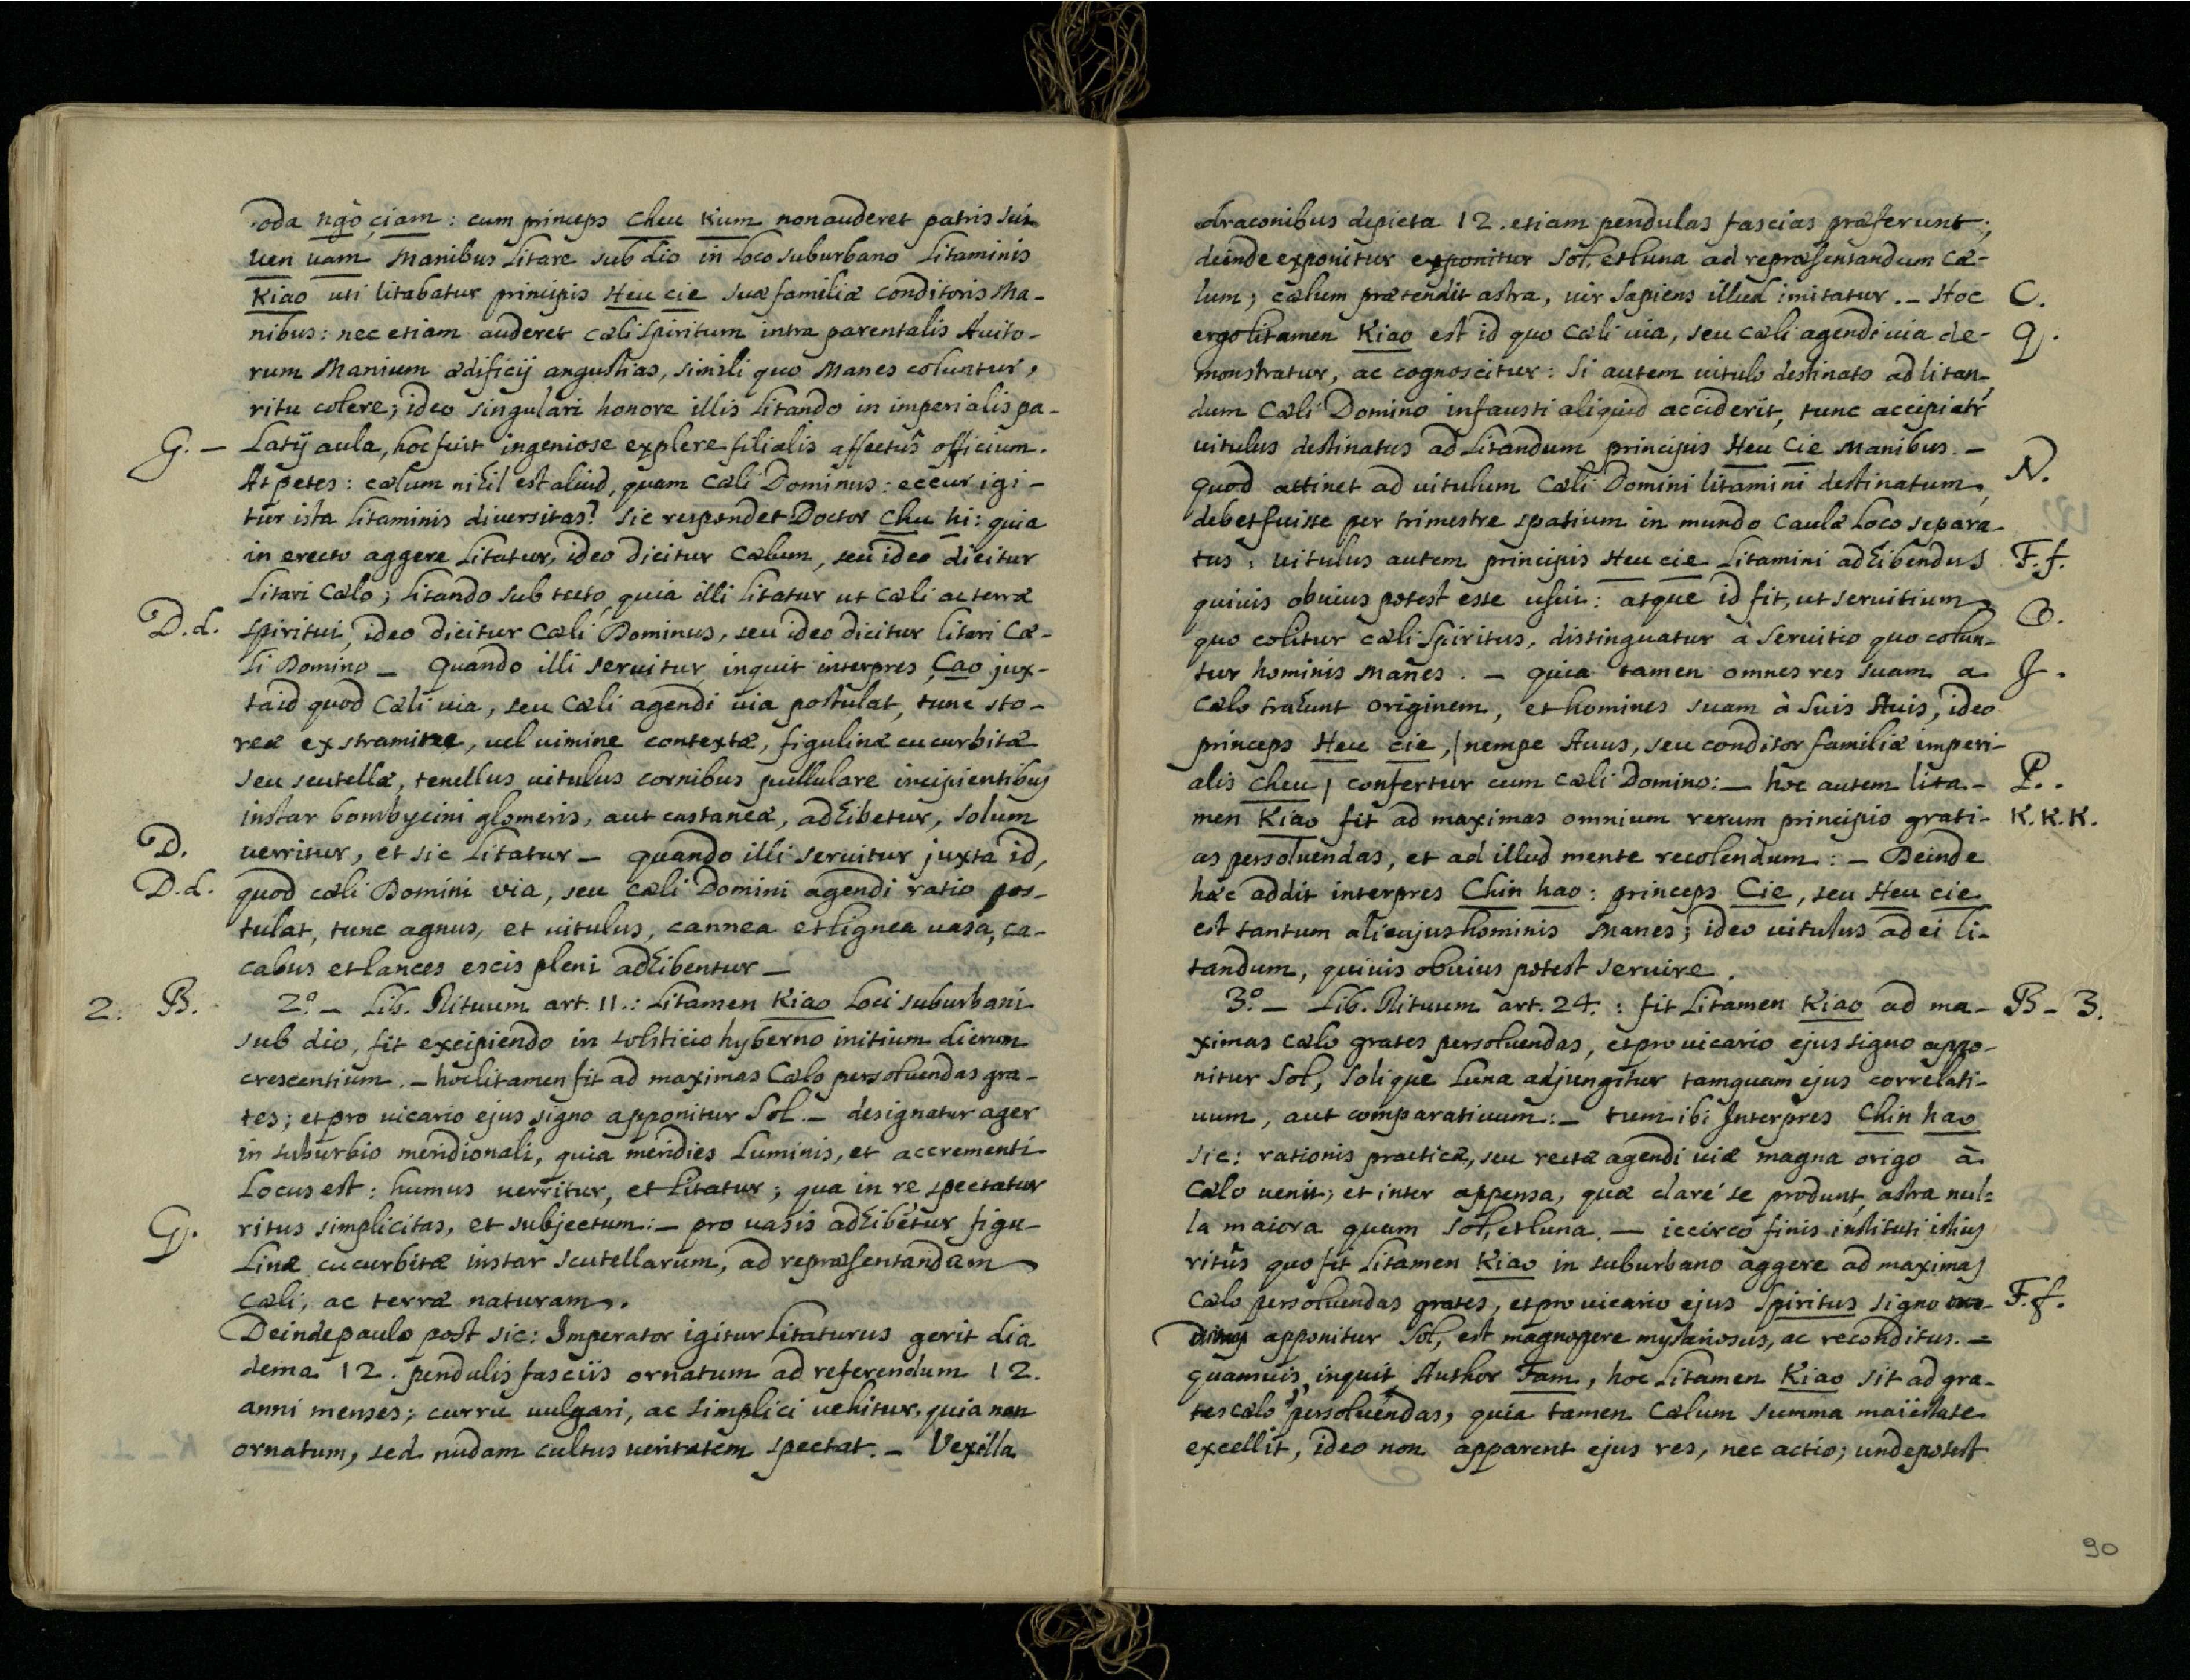 oda ngò çiam: cum princeps Cheu Kum non auderet patris sui
Uen uam Manibus litare sub dio in loco suburbano litaminis
Kiao uti litabatur principis Heu cie suæ familiæ conditoris Ma-
nibus: nec etiam auderet cæli Spiritum intra parentalis Auito-
rum Manium ædificij angustias, simili quo Manes coluntur,
ritu colere; ideo singulari honore illis litando in imperialis pa-
G. - latij aula, hoc fuit ingeniose explere filialis affectûs officium.
At petes: cælum nihil est aliud, quam Cæli Dominus: eccur igi-
tur ista litaminis diversitas? Sic respondet Doctor Chu hi: quia
in erecto aggere litatur, ideo dicitur Cælum, seu ideo dicitur
litari Cælo; litando sub tecto, quia illi litatur ut Cæli ac terræ
D.d. spiritui, ideo dicitur Cæli Dominus, seu ideo dicitur litari Cæ-
li Domino - Quando illi seruitur, inquit interpres Çao jux-
ta id quod Cæli uia, seu Cæli agendi uia postulat, tunc sto-
reæ ex stramine, uel uimine contextæ, figulinæ cucurbitæ
seu scutellæ, tenellus uitulus cornibus pullulare incipientibus
instar bombycini glomeris, aut castaneæ, adhibetur, solum
D. uerritur, et sic litatur - quando illi seruitur juxta id,
D.d. quod cæli Domini via, seu cæli Domini agendi ratio pos-
tulat, tunc agnus, et uitulus, cannea et lignea uasa, ca-
cabus et lances escis pleni adhibentur -
2. B. 2.º - Lib. Rituum art. 11.: Litamen Kiao loci suburbani
sub dio, fit excipiendo in solsticio hyberno initium dierum
crescentium. - hoc litamen fit ad maximas Cælo persoluendas gra-
tes; et pro uicario ejus signo apponitur Sol. - designatur ager
in suburbio meridionali, quia meridies luminis, et accrementi
locus est: humus uerritur, et litatur; qua in re spectatur
G. ritus simplicitas, et subjectum: - pro uasis adhibetur figu-
linæ cucurbitæ instar scutellarum, ad repræsentandam
Cæli, ac terræ naturam.
Deinde paulo post sic: Imperator igitur litaturus gerit dia
dema 12. pendulis fasciis ornatum ad referendum 12.
anni menses; curru uulgari, ac simplici uehitur, quia non
ornatum, sed nudam cultus ueritatem spectat. - Vexilla
draconibus depicta 12. etiam pendulas fascias præferunt;
deinde exponitur exponitur Sol, et luna ad repræsentandum Cæ-
lum; cælum prætendit astra, uir Sapiens illud imitatur. - Hoc C.
ergo litamen Kiao est id quo Cæli uia, seu Cæli agendi uia de- G.
monstratur, ac cognoscitur: Si autem uitulo destinato ad litan-
dum Cæli Domino infausti aliquid acciderit, tunc accipiatr
uitulus destinatus ad litandum principis Heu Cie Manibus. -
quod attinet ad uitulum Cæli Domini litamini destinatum, N.
debet fuisse per trimestre spatium in mundo caulæ loco separa-
tus: uitulus autem principis Heu cie litamini adhibendus F.f.
quiuis obuius potest esse usui: atque id fit, ut seruitium
quo colitur cæli Spiritus, distinguatur à seruitio quo colun- O.
tur hominis Manes. - quia tamen omnes res suam a J.
Cælo trahunt originem, et homines suam à suis Auis, ideo
princeps Heu cie, / nempe Auus, seu conditor familiæ imperi-
alis Cheu / confertur cum Cæli Domino: - hoc autem lita- P.
men Kiao fit ad maximas omnium rerum principio grati- K.K.K.
as persoluendas, et ad illud mente recolendum: - Deinde
hæc addit interpres Chin hao: princeps Cie, seu Heu cie
est tantum alicujus hominis Manes; ideo uitulus ad ei li-
tandum, quiuis obuius potest seruire.
3.º - Lib. Rituum art. 24.: fit litamen Kiao ad ma- B - 3.
ximas Cælo grates persoluendas, et pro uicario ejus signo appo-
nitur Sol, Solique luna adjungitur tamquam ejus correlati-
uum, aut comparatiuum: - tum ibi Interpres Chin hao
sic: rationis practicæ, seu rectæ agendi uiæ magna origo à
Cælo uenit; et inter appensa, quæ clarè se produnt, astra nul-
la maiora quam Sol, et luna. - iccirco finis instituti istius
ritûs quo fit litamen Kiao in suburbano aggere ad maximas
Cælo persoluendas grates, et pro uicario ejus Spiritus signo F.f.
apponitur Sol, est magnopere mysteriosus, ac reconditus. -
quamuis, inquit Author Fam, hoc litamen Kiao sit ad gra-
tes cælo persoluendas, quia tamen Cælum summa maiestate
excellit, ideo non apparent ejus res, nec actio; unde potest
90